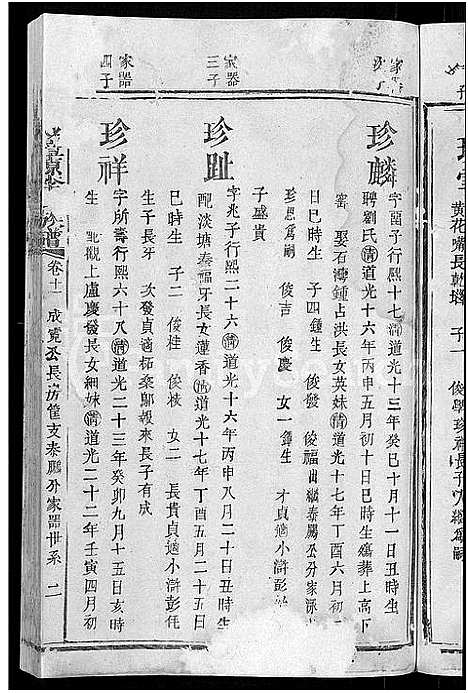 黃花
長乾
子一
俊
珍
長子
繼為嗣
珍麟
字
子行熙十七清道光十三年癸巳十月十一日丑時生
聘劉氏清道光十六年丙申五月初十日巳時生
葬上高下
娶石灣鍾占洪長女英妹清道光十七年丁酉六月初
日巳時生 子四鍾生 俊發 俊福
繼泰
公分家
珍恩為嗣 俊吉 俊慶 女一鍾生 才貞適小滸彭
子盛貴
家器
三子
珍趾
字兆子行熙二十六清道光十六年丙申八月二十日丑時生
配淡塘秦福牙長女蓮香清道光十七年丁酉五月二十五日
巳時生 子二 俊桂 俊枝 女二 長貴貞適小滸彭任
生子長牙 次發貞適拓桼鄔報來長子有成
家器
四子
珍祥
字所壽行熙六十八清道光二十三年癸卯九月十五日亥時
生 配觀上盧慶發長女細妹清道光二十二年壬寅四月初
族譜
卷十一
成寬公長房篁支泰鵬公分家器世系 二